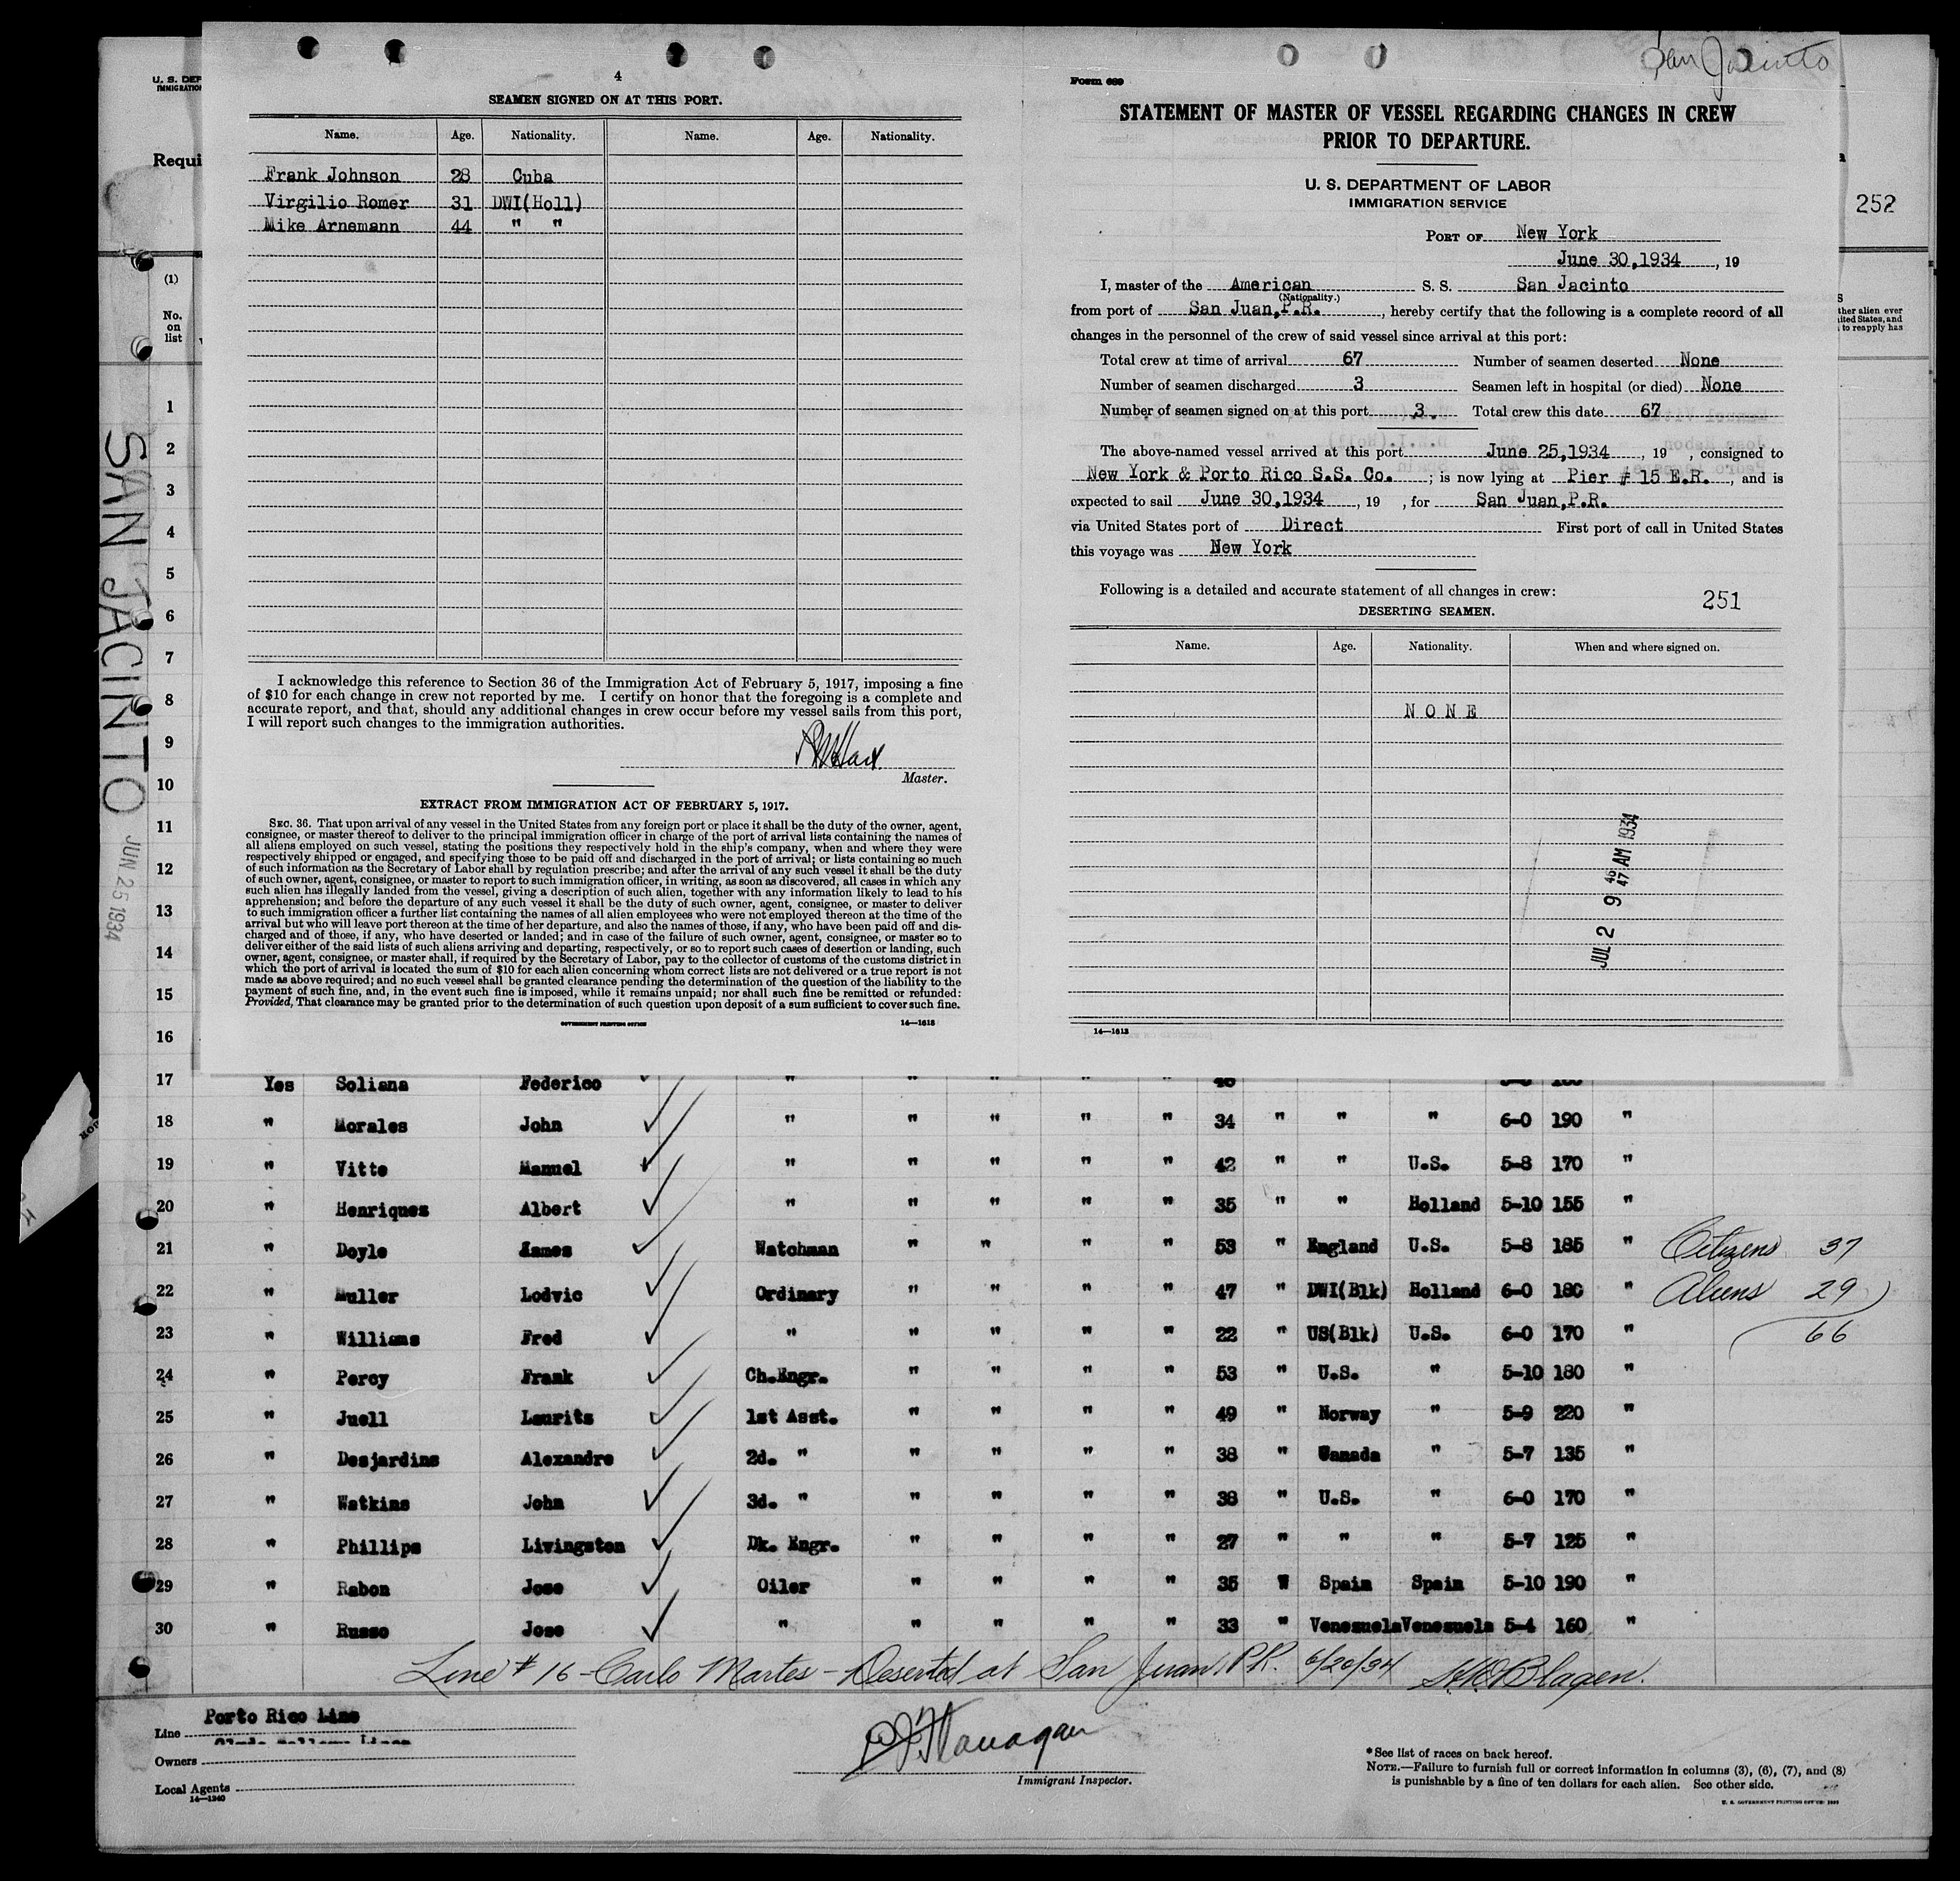 4
SEAMEN SIGNED ON AT THIS PORT.
Name. Age. Nationality. Name. Age. Nationality.
Frank Johnson 28 Cuba
Virgilio Romer 31 DWI(Holl)
Mike Arnemann 44 " "
I acknowledge this reference to Section 36 of the Immigration Act of February 5, 1917, imposing a fine
of $10 for each change in crew not reported by me. I certify on honor that the foregoing is a complete and
accurate report, and that, should any additional changes in crew occur before my vessel sails from this port,
I will report such changes to the immigration authorities.
Master.
EXTRACT FROM IMMIGRATION ACT OF FEBRUARY 5, 1917.
SEC. 36. That upon arrival of any vessel in the United States from any foreign port or place it shall be the duty of the owner, agent,
consignee, or master thereof to deliver to the principal immigration officer in charge of the port of arrival lists containing the names of
all aliens employed on such vessel, stating the positions they respectively hold in the ship's company, when and where they were
respectively shipped or engaged, and specifying those to be paid off and discharged in the port of arrival; or lists containing so much
of such information as the Secretary of Labor shall by regulation prescribe; and after the arrival of any such vessel it shall be the duty
of such owner, agent, consignee, or master to report to such immigration officer, in writing, as soon as discovered, all cases in which any
such alien has illegally landed from the vessel, giving a description of such alien, together with any information likely to lead to his
apprehension; and before the departure of any such vessel it shall be the duty of such owner, agent, consignee, or master to deliver
to such immigration officer a further list containing the names of all alien employees who were not employed thereon at the time of the
arrival but who will leave port thereon at the time of her departure, and also the names of those, if any, who have been paid off and dis-
charged and of those, if any, who have deserted or landed; and in case of the failure of such owner, agent, consignee, or master so to
deliver either of the said lists of such aliens arriving and departing, respectively, or so to report such cases of desertion or landing, such
owner, agent, consignee, or master shall, if required by the Secretary of Labor, pay to the collector of customs of the customs district in
which the port of arrival is located the sum of $10 for each alien concerning whom correct lists are not delivered or a true report is not
made as above required; and no such vessel shall be granted clearance pending the determination of the question of the liability to the
payment of such fine, and, in the event such fine is imposed, while it remains unpaid; nor shall such fine be remitted or refunded:
Provided, That clearance may be granted prior to the determination of such question upon deposit of a sum sufficient to cover such fine.
GOVERNMENT PRINTING OFFICE 14—1613
San Jacinto
Form 689
STATEMENT OF MASTER OF VESSEL REGARDING CHANGES IN CREW
PRIOR TO DEPARTURE.
U. S. DEPARTMENT OF LABOR
IMMIGRATION SERVICE
PORT OF New York
June 30,1934, 19
I, master of the American S. S. San Jacinto
(Nationality.)
from port of San Juan,P.R., hereby certify that the following is a complete record of all
changes in the personnel of the crew of said vessel since arrival at this port:
Total crew at time of arrival 67 Number of seamen deserted None
Number of seamen discharged 3 Seamen left in hospital (or died) None
Number of seamen signed on at this port 3. Total crew this date 67
The above-named vessel arrived at this port June 25,1934, 19 , consigned to
New York & Porto Rico S.S. Co.; is now lying at Pier # 15 E.R., and is
expected to sail June 30,1934, 19 , for San Juan,P.R.
via United States port of Direct First port of call in United States
this voyage was New York
Following is a detailed and accurate statement of all changes in crew:
251
DESERTING SEAMEN.
Name. Age. Nationality. When and where signed on.
NONE
JUL 2 9 AM 1934
14—1613
U. S. DEP
IMMIGRATION
Requi
252
(1)
No.
on
list
ther alien ever
ited States, and
to reapply has
SAN JACINTO
JUN 25 1934
1
2
3
4
5
6
7
8
9
10
11
12
13
14
15
16
17 Yes Soliana Federico " " " " " 46
18 " Morales John " " " " " 34 " " " 6-0 190 "
19 " Vitte Manuel " " " " " 42 " " U.S. 5-8 170 "
20 " Henriques Albert " " " " " 35 " " Holland 5-10 155 "
21 " Doyle James Watchman " " " " 53 " England U.S. 5-8 185 " Citizens 37
22 " Muller Lodvic Ordinary " " " " 47 " DWI(Blk) Holland 6-0 180 " Aliens 29
23 " Williams Fred " " " " " 22 " US(Blk) U.S. 6-0 170 " 66
24 " Percy Frank Ch.Engr. " " " " 53 " U.S. " 5-10 180 "
25 " Juell Laurits 1st Asst. " " " " 49 " Norway " 5-9 220 "
26 " Desjardins Alexandre 2d. " " " " " 38 " Canada " 5-7 135 "
27 " Watkins John 3d. " " " " " 38 " U.S. " 6-0 170 "
28 " Phillips Livingston Dk. Engr. " " " " 27 " " " 5-7 125 "
29 " Rabon Jose Oiler " " " " 35 W Spain Spain 5-10 190 "
30 " Russo Jose " " " " " 33 " Venesuela Venesuela 5-4 160 "
Line # 16 - Carlo Martes - Deserted at San Juan, P.R. 6/20/34 Blagen.
Line Porto Rico Line
Owners
Local Agents
14—1240
Flanagan
Immigrant Inspector.
*See list of races on back hereof.
NOTE.—Failure to furnish full or correct information in columns (3), (6), (7), and (8)
is punishable by a fine of ten dollars for each alien. See other side.
U. S. GOVERNMENT PRINTING OFFICE